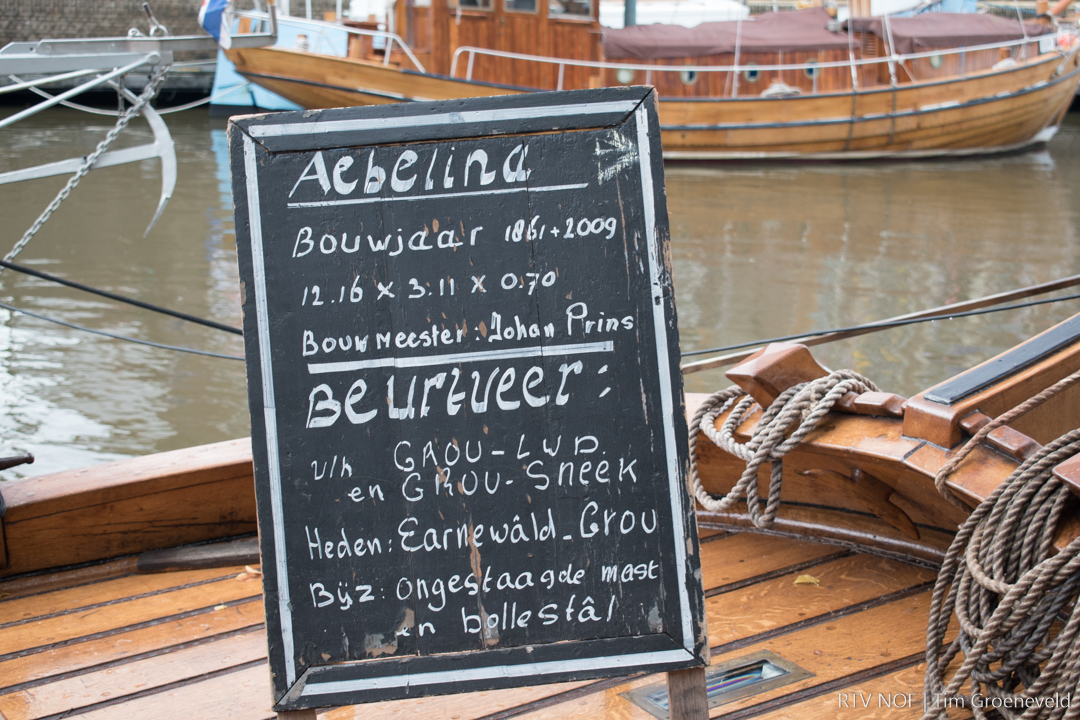 Aebelina
Bouwjaar 1861+2009
12.16 x 3.11 x 0.70
Bouwmeester: Johan Prins
Beurtveer:
v/h GROU-LWD.
en GROU-Sneek
Heden: Earnewâld-Grou
Bijz: ongestaagde mast
en bollestâl
RTV NOF | Tim Groeneveld